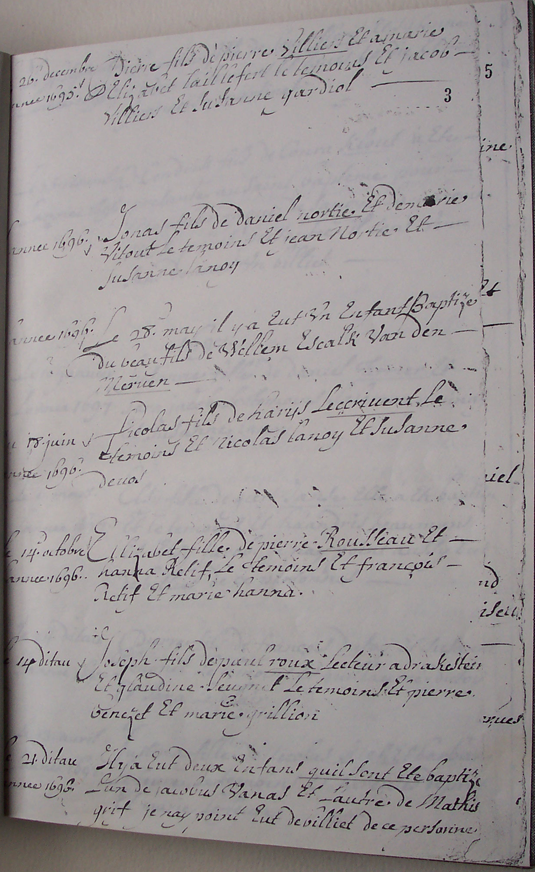 26 decembre Piere fils de pierre Villiers Et amarie
annee 1695 Elizabet taillefert le temoins Et jacob
Villiers Et Susanne gardiol
3
5
ine
annee 1696 Jonas fils de daniel nortie Et de marie
Vitout Le temoins Et jean Nortie Et
Susanne Lanoy
annee 1696 Le 28 may il y a Eut Un Enfant Baptize
du beau fils de Willem Escalk Van den
Merven
18 juin Nicolas fils de harijs Lecrivent Le
1696 temoins Et Nicolas Lanoy Et Susanne
devos
iel
le 14 octobre Elizabet fille de pierre Rousseau Et
annee 1696 hanna Retif Le temoins Et françois
Retif Et marie hanna
le 14 ditau Joseph fils de paul roux Lecteur a drakestein
Et glaudine Le temoins Et pierre
benezet Et marie grillion
le 21 ditau Il y a Eut deux Enfans quil sont Ete baptize
annee 1696 L'un de jacobus Vanas Et Lautre de Mathis
grif je nay point Eut de villiet de ce personne